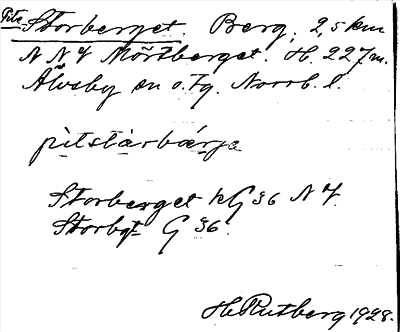 Pite-Storberget. Berg, 2,5 km
N N V Mörtberget. H. 227 m.
Älvsby sn o. tg. Norrb. l.
pitstàrbárja
Storberget hG 36 N V.
Storbgt G 36.
H. Rutberg 1928.